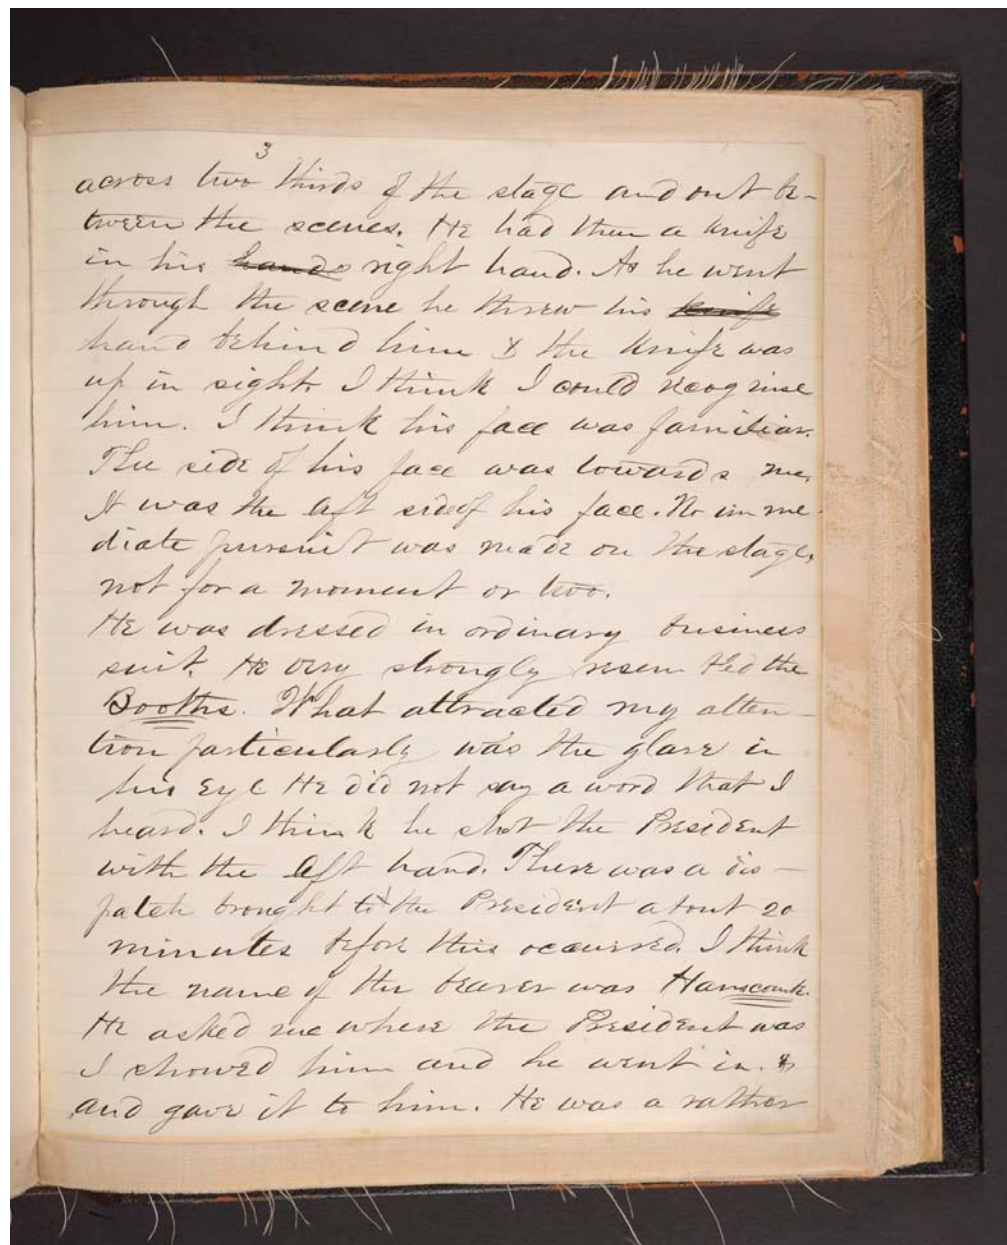 3
across two thirds of the stage and out be-
tween the scenes. He had then a knife
in his hands right hand. As he went
through the scene he threw his knife
hand behind him & the knife was
up in sight. I think I could recognise
him. I think his face was familiar.
The side of his face was towards me.
It was the left side of his face. No imme-
diate pursuit was made on the stage,
not for a moment or two.
He was dressed in ordinary business
suit. He very strongly resembled the
Booths. What attracted my atten-
tion particularly was the glare in
his eye He did not say a word that I
heard. I think he shot the President
with the left hand. There was a dis-
patch brought to the President about 20
minutes before this occurred. I think
the name of the bearer was Hanscomb.
He asked me where the President was
I showed him and he went in. &
and gave it to him. He was a rather